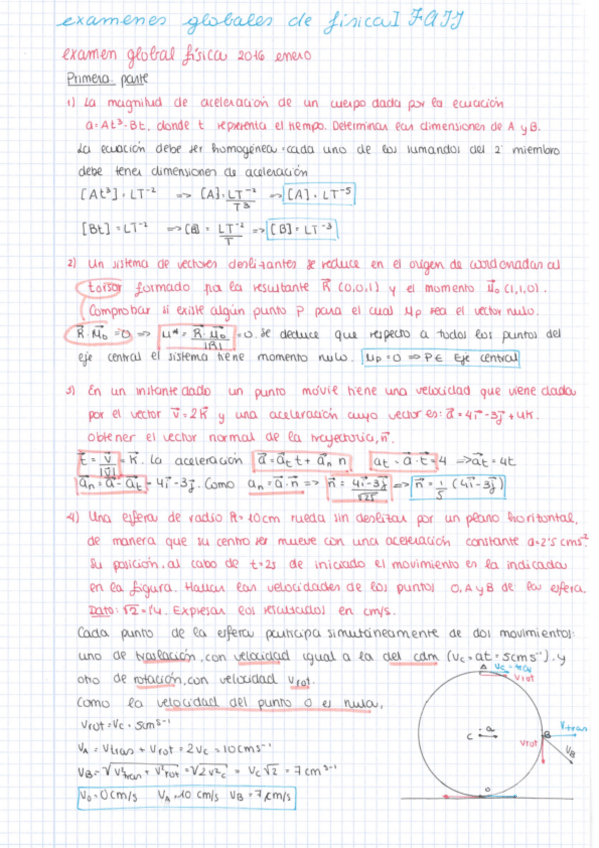 examenes globales de fisica I FAIJ
examen global física 2016 enero
Primera parte
1) La magnitud de aceleración de un cuerpo dada por la ecuación
a=At³·Bt, donde t representa el tiempo. Determinar las dimensiones de A y B.
La ecuación debe ser homogénea·cada uno de los sumandos del 2º miembro
debe tener dimensiones de aceleración
[At³]=LT⁻² => [A]=LT⁻²/T³ => [A]=LT⁻⁵
[Bt]=LT⁻² => [B]=LT⁻²/T => [B]=LT⁻³
2) Un sistema de vectores deslizantes se reduce en el origen de coordenadas al
torsor formado por la resultante R⃗ (0,0,1) y el momento μ⃗₀ (1,1,0).
Comprobar si existe algún punto P para el cual μp sea el vector nulo.
R⃗·μ⃗₀=0 => μ*=R⃗·μ⃗₀/|R⃗|=0. Se deduce que respecto a todos los puntos del
eje central el sistema tiene momento nulo. μp=0 => P∈ Eje central
3) En un instante dado un punto móvil tiene una velocidad que viene dada
por el vector v⃗=2k⃗ y una aceleración cuyo vector es: a⃗=4i⃗-3j⃗+4k.
obtener el vector normal de la trayectoria, n⃗.
t⃗=v⃗/|v⃗|=k⃗. La aceleración a⃗=a⃗t t+a⃗n n at=a⃗·t⃗=4 =>a⃗t=4t
a⃗n=a⃗-a⃗t=4i⃗-3j⃗. Como an=a⃗·n⃗ => n⃗=4i⃗-3j⃗/√25 => n⃗=1/5 (4i⃗-3j⃗)
4) Una esfera de radio R=10cm rueda sin deslizar por un plano horizontal,
de manera que su centro se mueve con una aceleración constante a=2'5 cms⁻²
Su posición, al cabo de t=2s de iniciado el movimiento es la indicada
en la figura. Hallar las velocidades de los puntos O, A y B de la esfera.
Dato: √2=1'4. Expresar los resultados en cm/s.
Cada punto de la esfera participa simultáneamente de dos movimientos:
uno de traslación, con velocidad igual a la del cdm (Vc=at=5cms⁻¹), y
otro de rotación, con velocidad Vrot.
Como la velocidad del punto O es nula,
Vrot=Vc=5cms⁻¹
VA=Vtran+Vrot=2Vc=10cms⁻¹
VB=√V²tran+V²rot=√2V²c=Vc√2=7cms⁻¹
V₀=0cm/s VA=10 cm/s VB=7cm/s
A
Vrot
C
a
B
Vtran
Vrot
VB
O